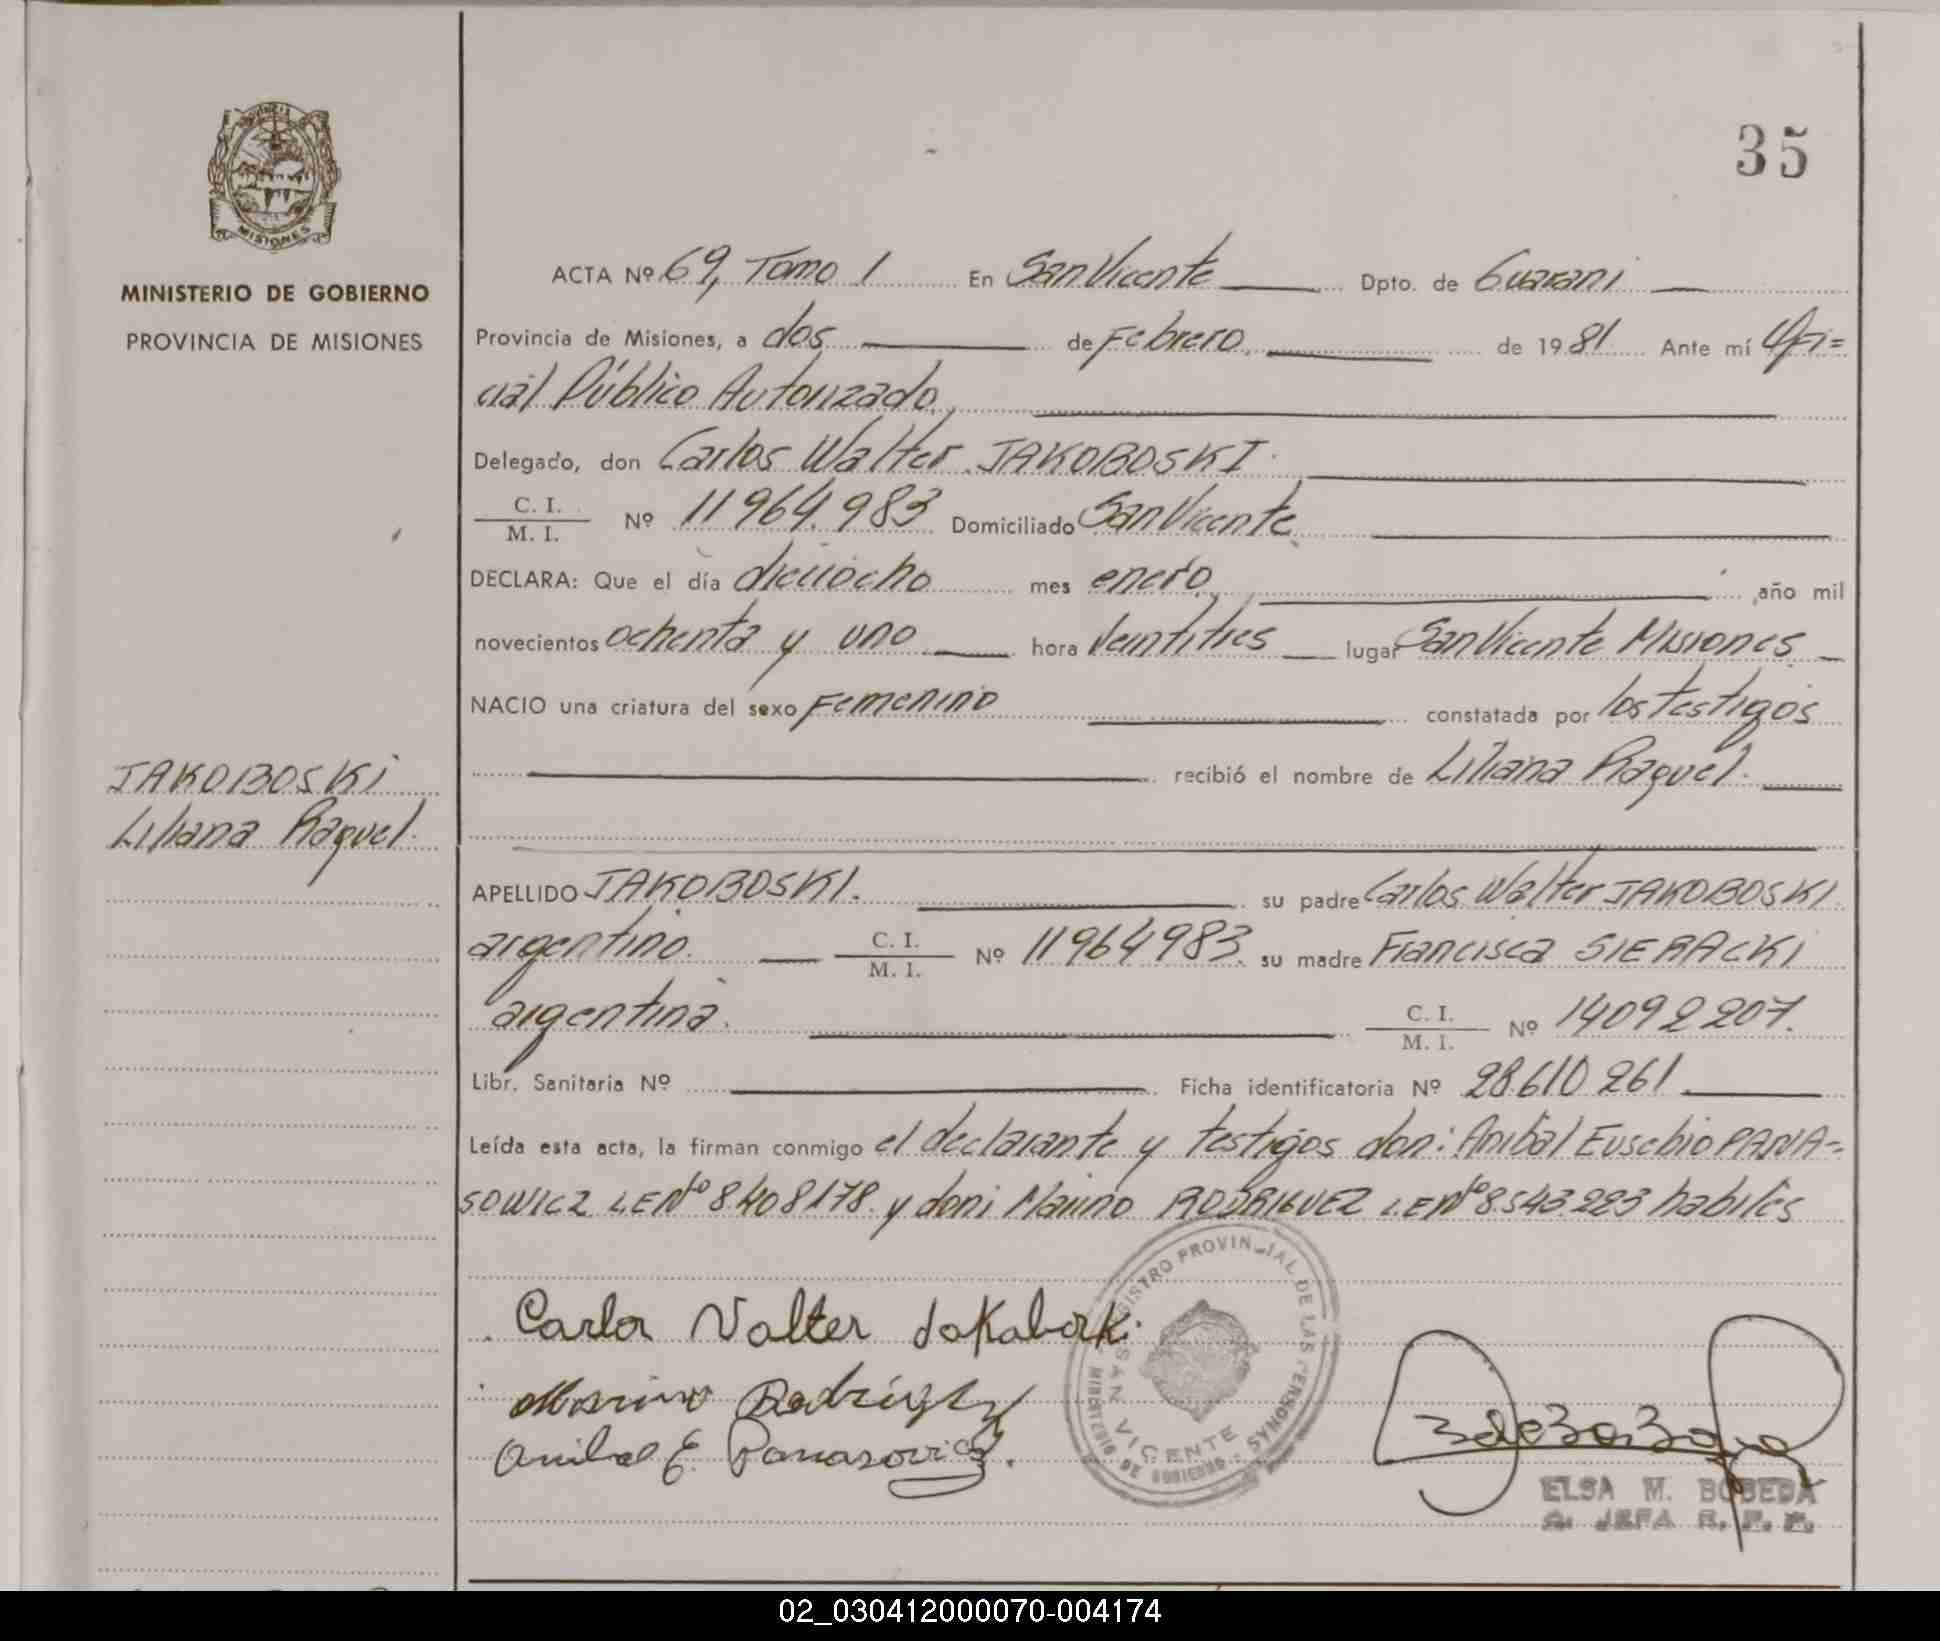 35
MISIONES
MINISTERIO DE GOBIERNO
PROVINCIA DE MISIONES
JAKOBOSKI
Liliana Raquel.
ACTA Nº 69, Tomo 1 En San Vicente Dpto. de Guarani
Provincia de Misiones, a dos de Febrero. de 1981. Ante mí Ofi=
cial Público Autorizado,
Delegado, don Carlos Walter JAKOBOSKI.
C. I.
M. I. Nº 11964.983 Domiciliado San Vicente
DECLARA: Que el día dieciocho mes enero, año mil
novecientos ochenta y uno hora Veintitres lugar San Vicente Misiones
NACIO una criatura del sexo Femenino constatada por los testigos
recibió el nombre de Liliana Raquel.
APELLIDO JAKOBOSKI. su padre Carlos Walter JAKOBOSKI.
argentino. C. I. M. I. Nº 11964983. su madre Francisca SIERACKI
argentina. C. I. M. I. Nº 14092207.
Libr. Sanitaria Nº Ficha identificatoria Nº 28.610.261.
Leída esta acta, la firman conmigo el declarante y testigos don: Anibal Eusebio PANA=
SOWICZ LE Nº 8.408.178. y don: Marino RODRIGUEZ LE Nº 8.543.223 habiles
Carlos Valter Jakaboski
Marino Rodriguez
Anibal E. Panasovicz.
REGISTRO PROVINCIAL DE LAS PERSONAS
SAN VICENTE
MINISTERIO DE GOBIERNO
ELSA M. BOBEDA
A. JEFA R. P. P.
02_030412000070-004174